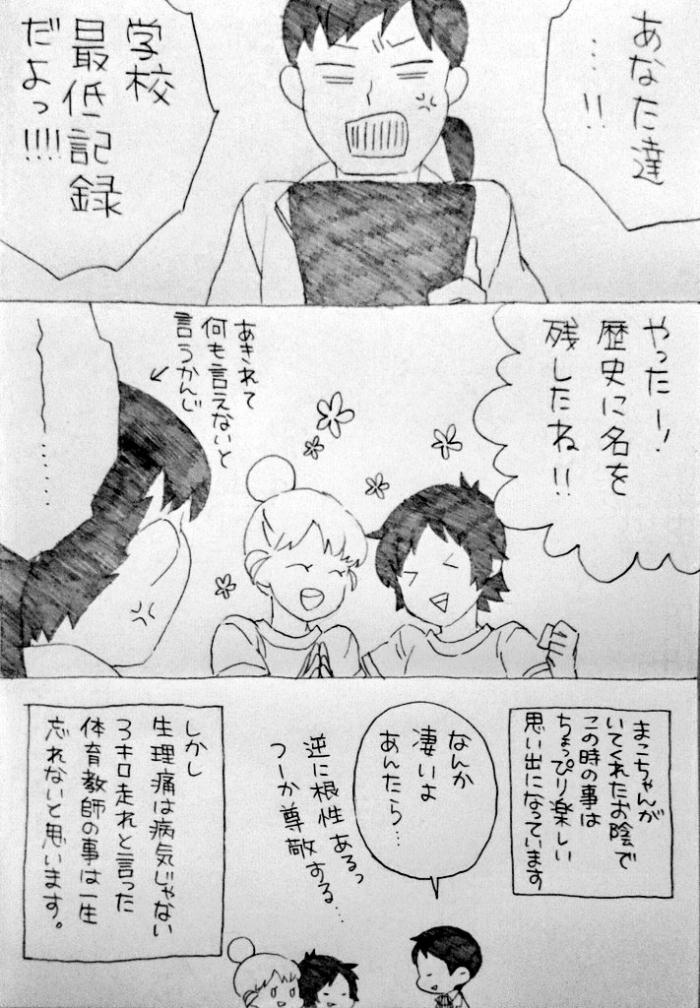 あなた達
……!!
学校
最低記録
だよっ!!!!
やったー!
歴史に名を
残したね!!
あきれて
何も言えないと
言うかんじ
……
まこちゃんが
いてくれたお陰で
この時の事は
ちょっぴり楽しい
思い出になっています
なんか
凄いよ
あんたら…
逆に根性あるっ
つーか尊敬する…
しかし
生理痛は病気じゃない
3キロ走れと言った
体育教師の事は一生
忘れないと思います。